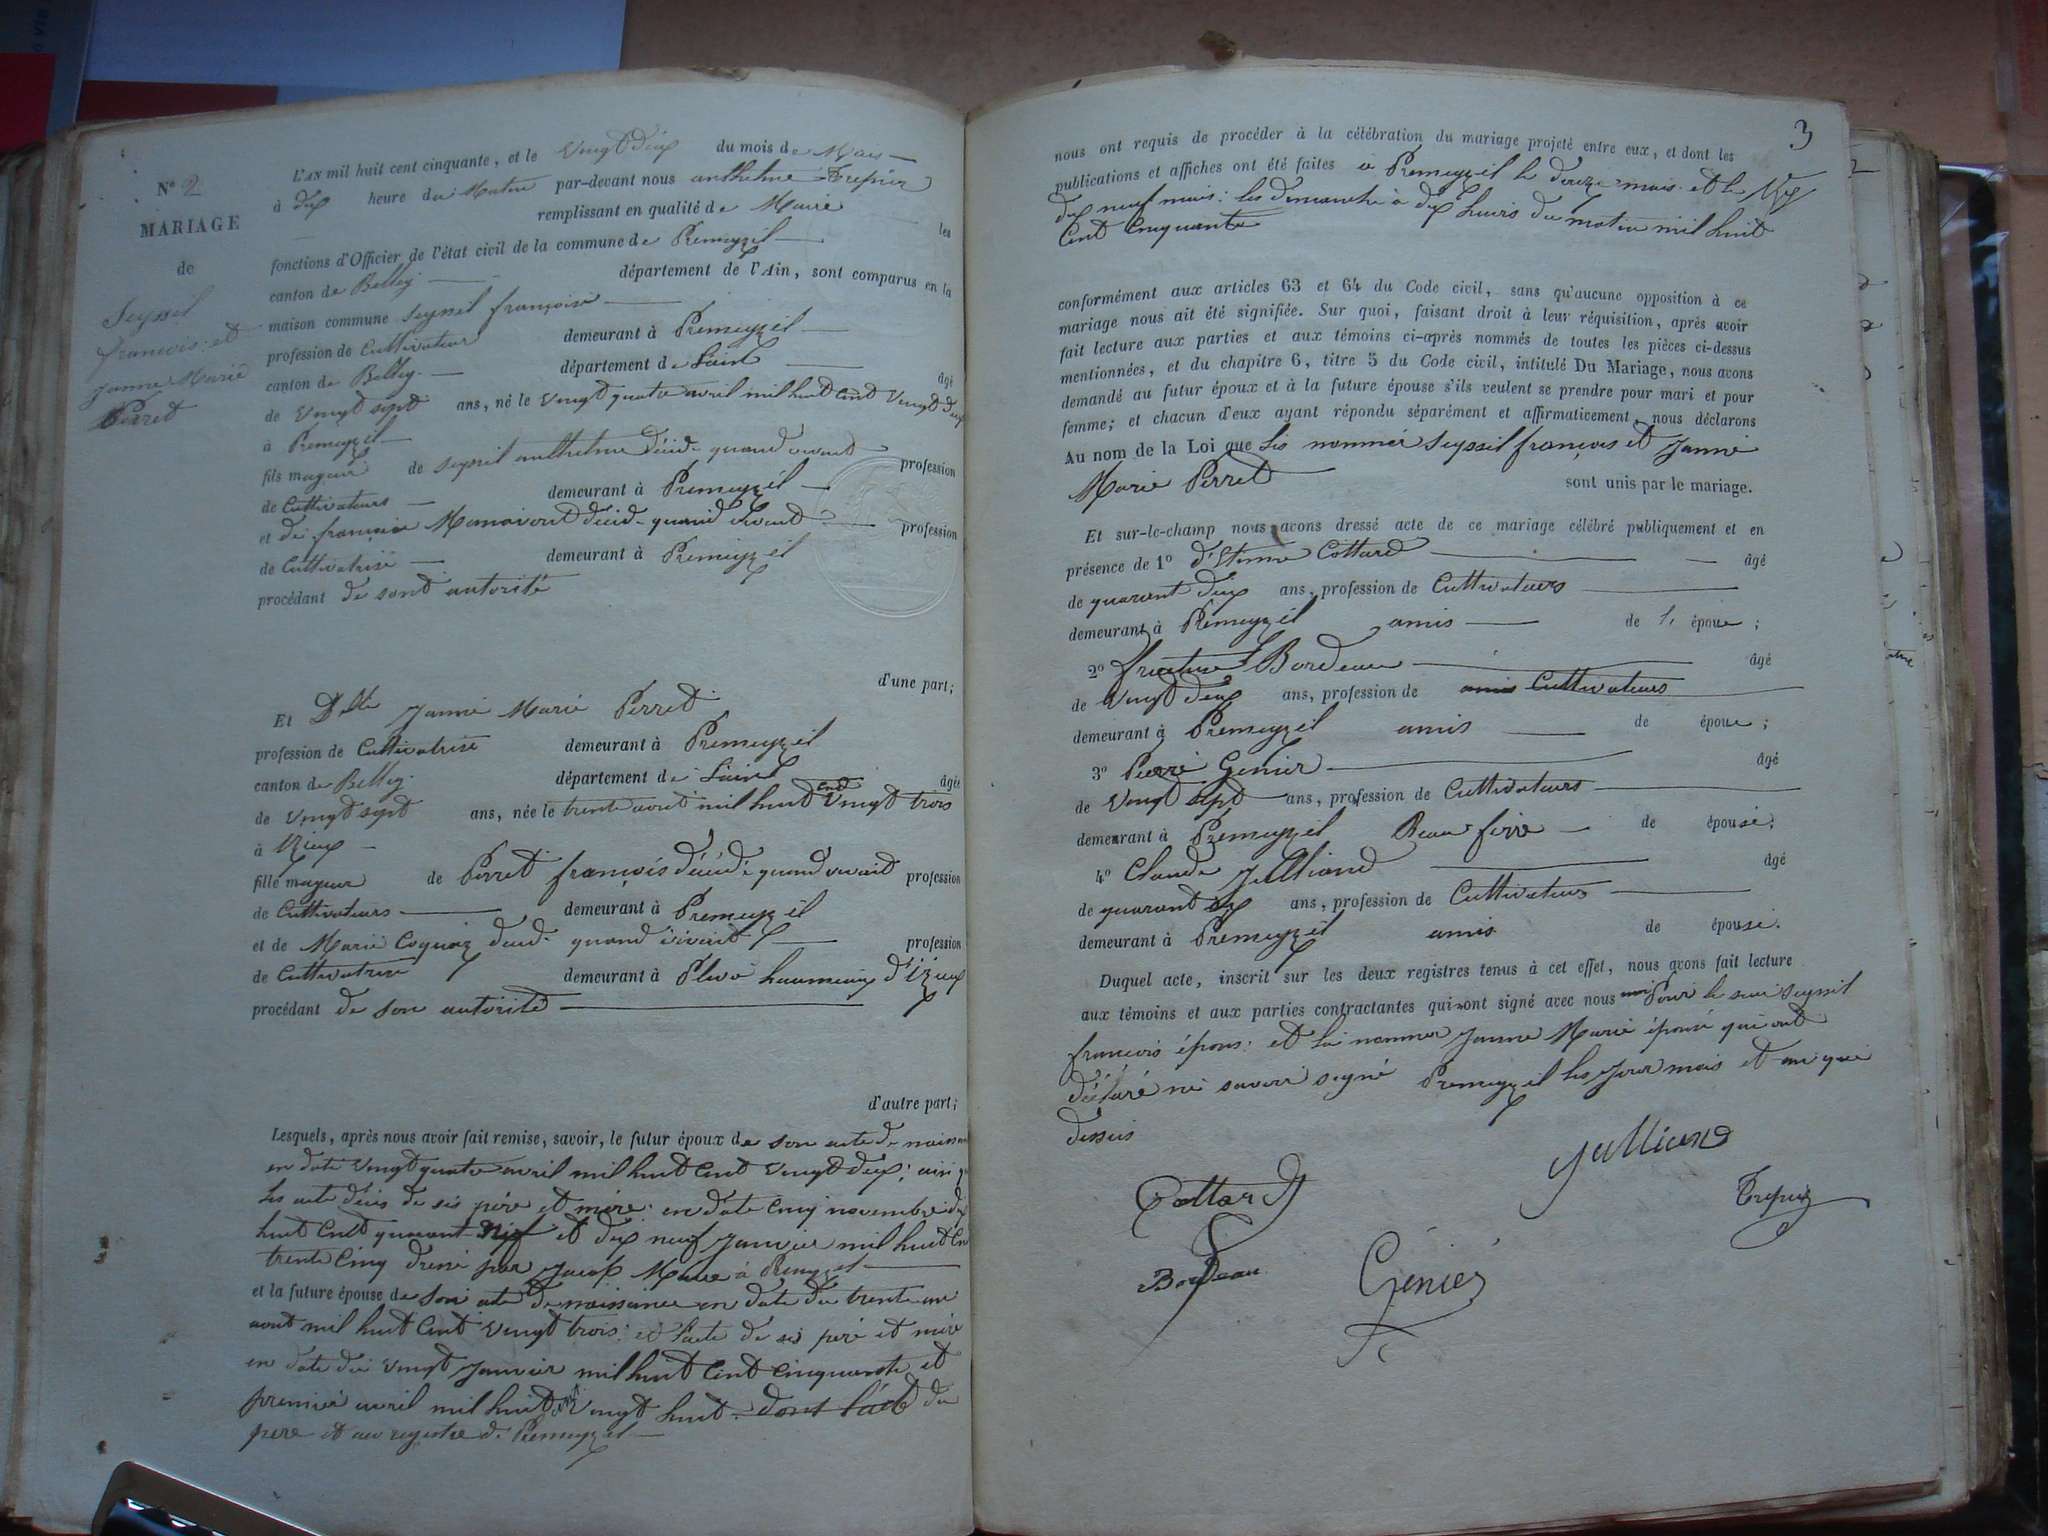 N° 2
MARIAGE
de
Seyssel
francois et
Janne Marie
Perret
L'AN mil huit cent cinquante, et le Vingt deux du mois de Mars
à dix heure du Matin par-devant nous anthelme Trepier
remplissant en qualité de Maire les
fonctions d'Officier de l'état civil de la commune de Premeyzel
canton de Belley département de l'Ain, sont comparus en la
maison commune Seyssel françois
profession de Cultivateur demeurant à Premeyzel
canton de Belley département de Lain âgé
de Vingt sept ans, né le vingt quatre avril mil huit cent vingt deux
à Premeyzel
fils majeur de seyssel anthelme décédé quand vivait profession
de Cultivateurs demeurant à Premeyzel
et de françoise décédé quand vivait profession
de Cultivatrise demeurant à Premeyzel
procédant de sont autorité
d'une part;
Et Dlle Janne Marie Perret
profession de Cultivatrise demeurant à Premeyzel
canton de Belley département de Lain âgée
de Vingt sept ans, née le trente aout mil huit cent vingt trois
à
fille majeur de Perret françois décédé quand vivait profession
de Cultivateurs demeurant à Premeyzel
et de Marie Coquaz quand vivait profession
de Cultivatrise demeurant à d'izieux
procédant de son autorité
d'autre part;
Lesquels, après nous avoir fait remise, savoir, le futur époux de son acte de naissan
en date vingt quatre avril mil huit cent vingt deux; ainsi q
les acte décès de ses père et mère en date cinq novembre dix
huit cent quarant neuf et dix neuf Janvier mil huit cen
trente cinq dressé par Jacob Maire à Premeyzel
et la future épouse de son acte de naissance en date du trente un
aout mil huit cent vingt trois: et l'acte de ses père et mère
en date du vingt Janvier mil huit cent cinquante et
premier avril mil huit cent vingt huit dont l'acte du
pere et au registre de Premeyzel
3
nous ont requis de procéder à la célébration du mariage projeté entre eux, et dont les
publications et affiches ont été faites a Premeyzel le douze mars et le
dix neuf mars: les dimanche à dix heures du matin mil huit
Cent Cinquante
conformément aux articles 63 et 64 du Code civil, sans qu'aucune opposition à ce
mariage nous ait été signifiée. Sur quoi, faisant droit à leur réquisition, après avoir
fait lecture aux parties et aux témoins ci-après nommés de toutes les pièces ci-dessus
mentionnées, et du chapitre 6, titre 5 du Code civil, intitulé Du Mariage, nous avons
demandé au futur époux et à la future épouse s'ils veulent se prendre pour mari et pour
femme; et chacun d'eux ayant répondu séparément et affirmativement, nous déclarons
Au nom de la Loi que les nommés Seyssel françois et Janne
Marie Perret sont unis par le mariage.
Et sur-le-champ nous avons dressé acte de ce mariage célébré publiquement et en
présence de 1° d'Etienne Cottard âgé
de quarant deux ans, profession de Cultivateurs
demeurant à Premeyzel amis de l, époux;
2° Bordeau âgé
de vingt deux ans, profession de amis Cultivateurs
demeurant à Premeyzel amis de époux;
3° Pierre Genier âgé
de Vingt sept ans, profession de Cultivateurs
demeurant à Premeyzel Beau firre de épouse;
4° Claude Julliand âgé
de quarant six ans, profession de Cultivateur
demeurant à Premeyzel amis de épouse.
Duquel acte, inscrit sur les deux registres tenus à cet effet, nous avons fait lecture
aux témoins et aux parties contractantes qui ont signé avec nous non Pour le sieur Seyssel
francois époux: et la nommée Janne Marie épouse qui ont
déclaré ne savoir signé Premeyzel les Jour mois et an que
dessus
Julliand
Cottard
Trepier
Bordeau
Génier